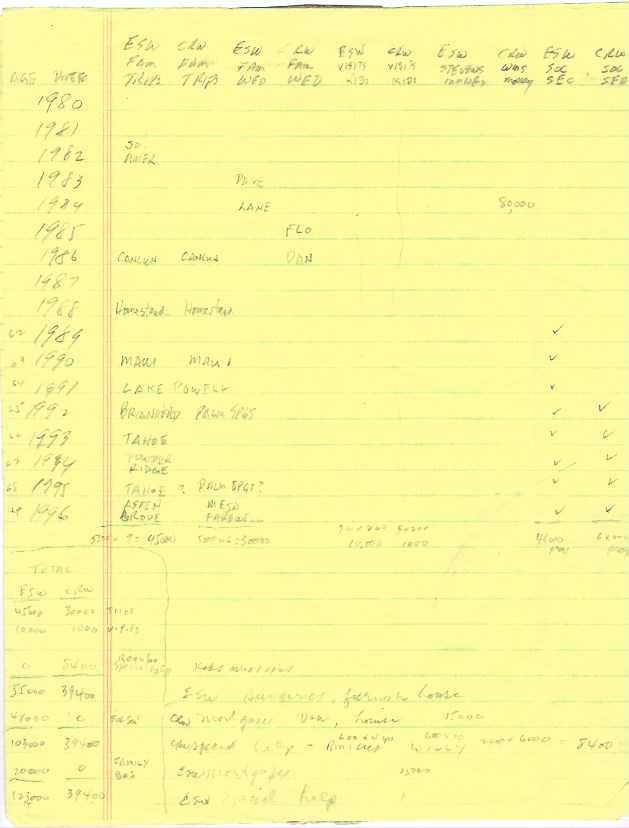 ESW CRW ESW CRW ESW CRW ESW CRW ESW CRW
FAM FAM FAM FAM VISITS VISITS STEVENS WMS SOC SOC
AGE DATES TRIPS TRIPS WED WED KIDS KIDS MONEY money SEC SEC
1980
1981
1982 SO. AMER
1983 DAVE
1984 LANE 80,000
1985 FLO
1986 CANCUN CANCUN DAN
1987
1988 Homestead Homestead
62 1989 ✓
63 1990 MAUI MAUI ✓
64 1991 LAKE POWELL ✓
65 1992 BRIANHEAD PALM SPGS ✓ ✓
66 1993 TAHOE ✓ ✓
67 1994 POWDER RIDGE ✓ ✓
68 1995 TAHOE ? PALM SPGS? ✓ ✓
69 1996 ASPEN GROVE MESA FAREWELL ✓ ✓
5000 x 9 = 45000 5000x6=30000 10,000 1000 48000
TOTAL
ESW CRW
45000 30000 Trips
10,000 1000 Visits
0 8400 Special help Kids
55000 39400 ESW Surgeries, furnish house
48000 0 Soc Sec CRW mortgages Van, house 15000
103000 39400 CRW special help - 600 x 4 yrs 600 x 10 2400 + 6000 = 8400
20000 0 FAMILY BUS ESW mortgages
123,000 39400 ESW special help